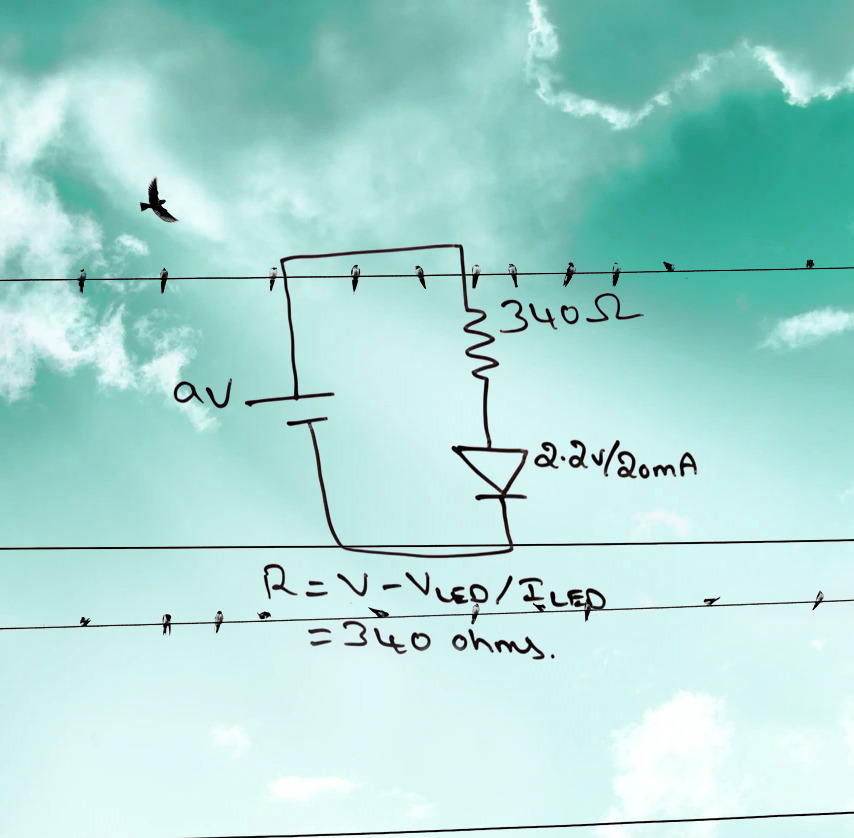 340Ω
9V
2.2V/20mA
R = V - VLED / ILED
= 340 ohms.